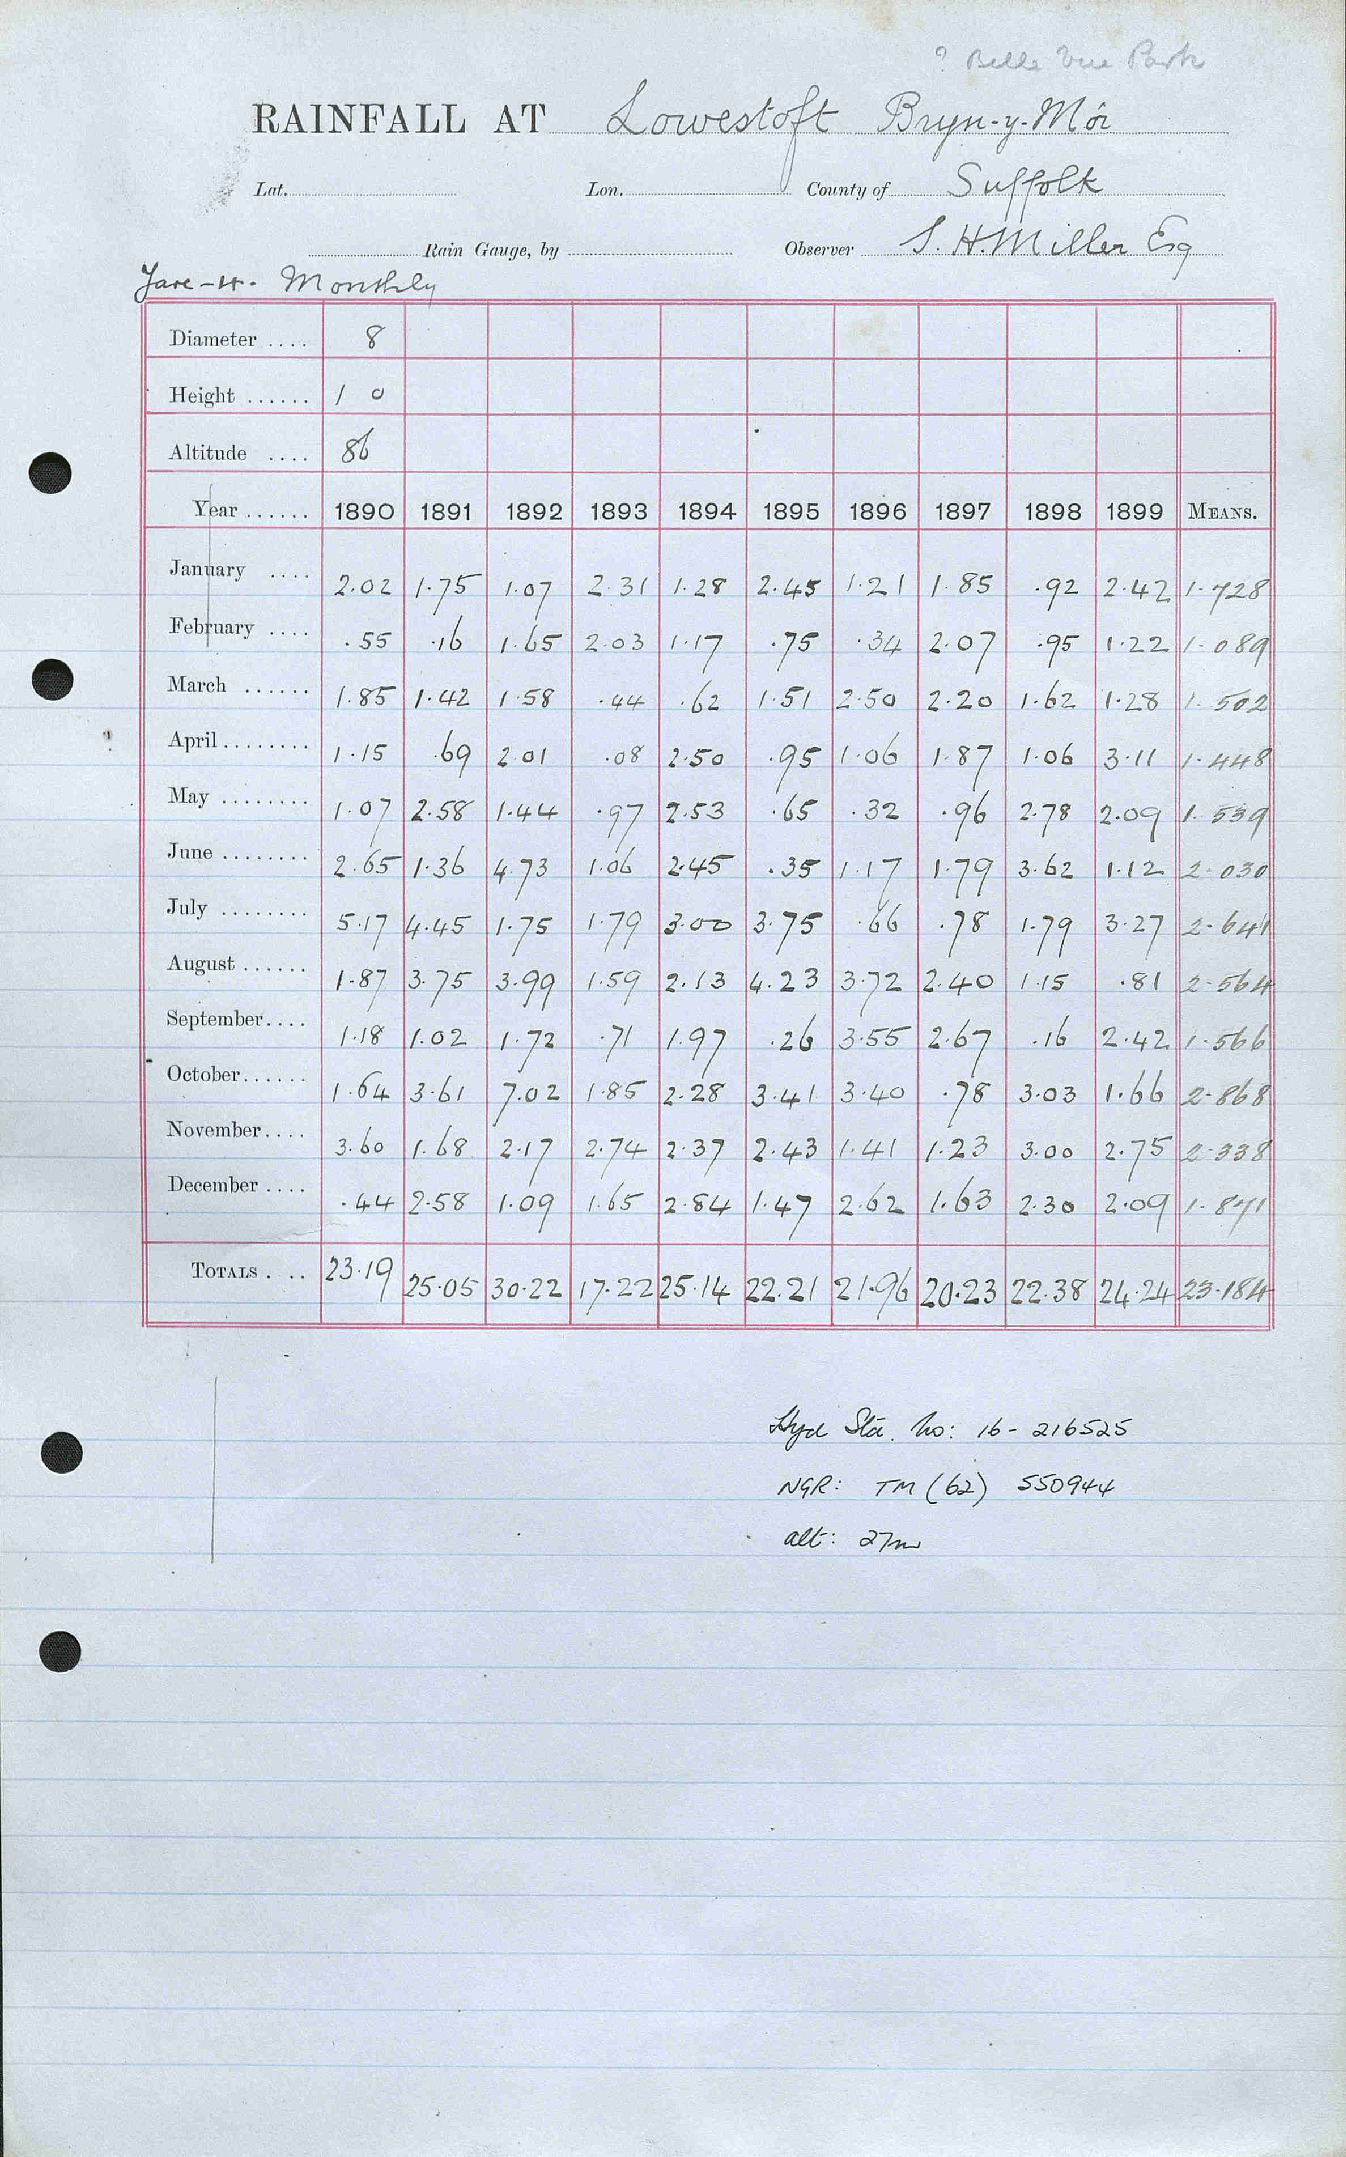 ? Belle Vue Park
RAINFALL AT Lowestoft Bryn-y-Môr
Lat. Lon. County of Suffolk
Rain Gauge, by Observer S. H. Miller Esq
Yare - 4. Monthly
Diameter .... 8
Height ...... 1 0
Altitude .... 86
Year ...... 1890 1891 1892 1893 1894 1895 1896 1897 1898 1899 MEANS.
January .... 2.02 1.75 1.07 2.31 1.28 2.45 1.21 1.85 .92 2.42 1.728
February .... .55 .16 1.65 2.03 1.17 .75 .34 2.07 .95 1.22 1.089
March ...... 1.85 1.42 1.58 .44 .62 1.51 2.50 2.20 1.62 1.28 1.502
April ........ 1.15 .69 2.01 .08 2.50 .95 1.06 1.87 1.06 3.11 1.448
May ........ 1.07 2.58 1.44 .97 2.53 .65 .32 .96 2.78 2.09 1.539
June ........ 2.65 1.36 4.73 1.06 2.45 .35 1.17 1.79 3.62 1.12 2.030
July ........ 5.17 4.45 1.75 1.79 3.00 3.75 .66 .78 1.79 3.27 2.641
August ...... 1.87 3.75 3.99 1.59 2.13 4.23 3.72 2.40 1.15 .81 2.564
September .... 1.18 1.02 1.72 .71 1.97 .26 3.55 2.67 .16 2.42 1.566
October ...... 1.64 3.61 7.02 1.85 2.28 3.41 3.40 .78 3.03 1.66 2.868
November .... 3.60 1.68 2.17 2.74 2.37 2.43 1.41 1.23 3.00 2.75 2.338
December .... .44 2.58 1.09 1.65 2.84 1.47 2.62 1.63 2.30 2.09 1.871
TOTALS . .. 23.19 25.05 30.22 17.22 25.14 22.21 21.96 20.23 22.38 24.24 23.184
Hyd Sta. No: 16-216525
NGR: TM (62) 550944
alt: 27m